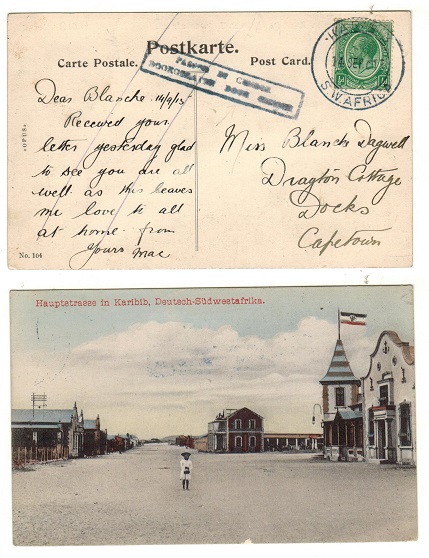 Postkarte.
Carte Postale.
Post Card.
PASSED BY CENSOR
DOORGELATEN DOOR CENSOR
S.W.AFRICA
Dear Blanche 14/9/15
Received your
letter yesterday glad
to see you are all
well. as this leaves
me love to all
at home from
Yours Mac
Miss Blanche Dagwell
Drayton Cottage
Docks
Capetown
«OPUS»
No. 104
Hauptstrasse in Karibib, Deutsch-Südwestafrika.